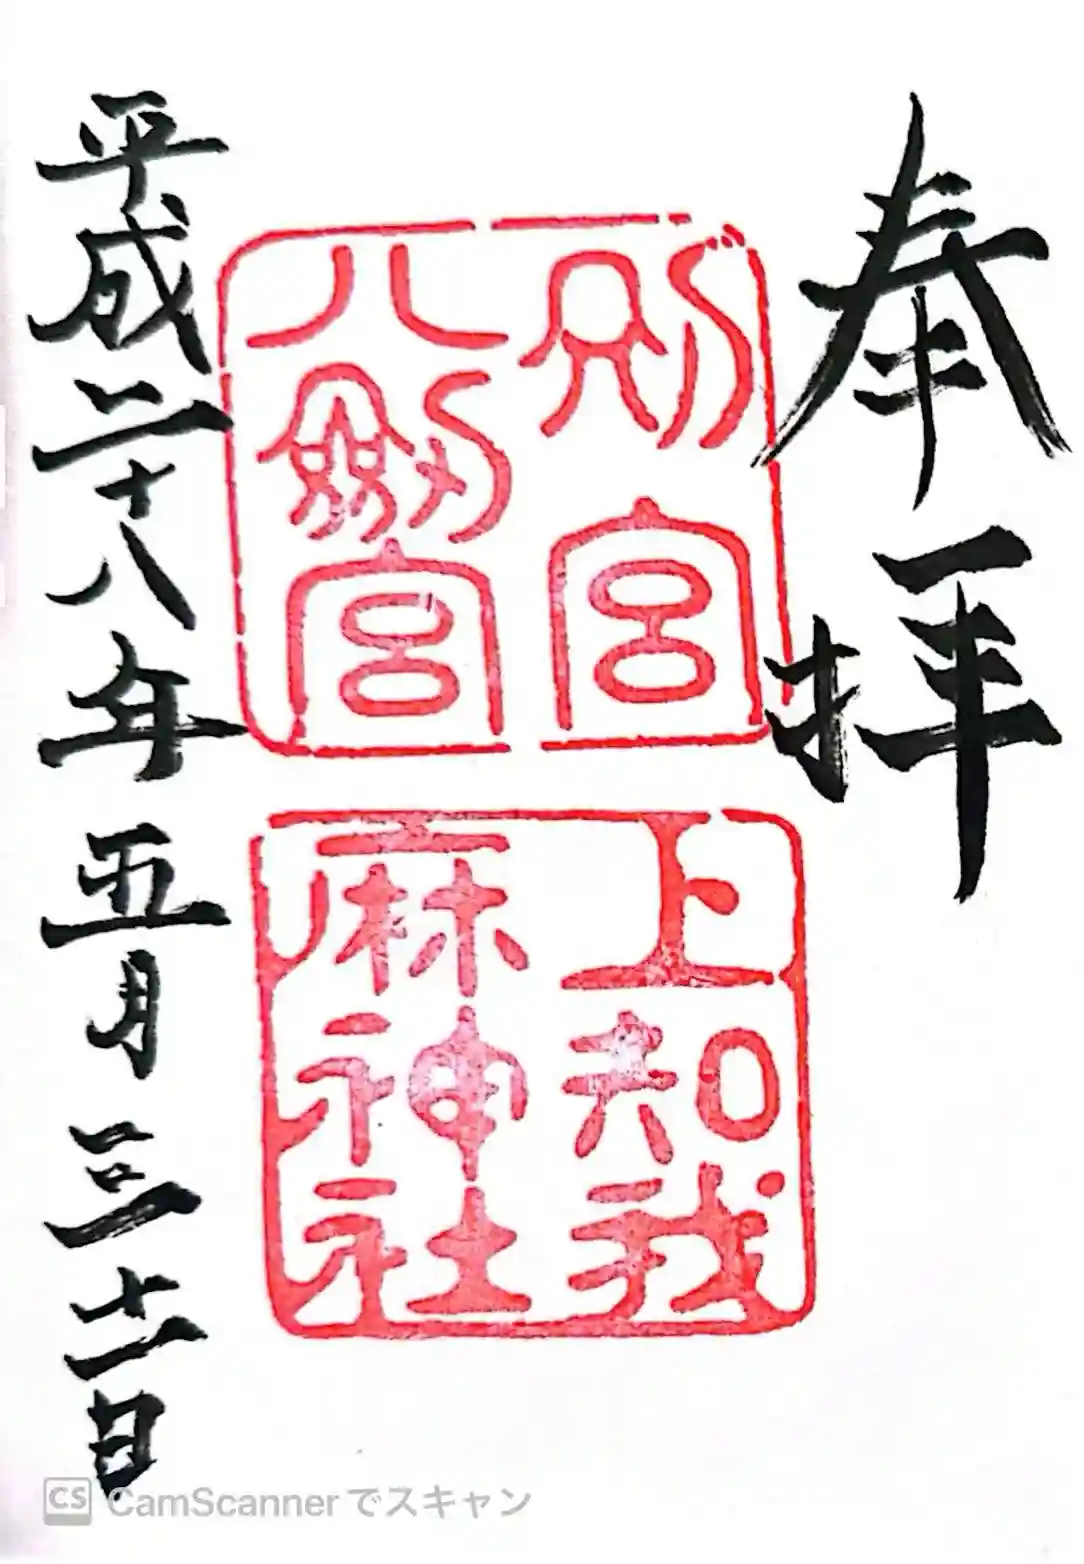 奉拝
別宮
八劍宮
上知我
麻神社
平成二十八年五月三十一日
CS CamScannerでスキャン